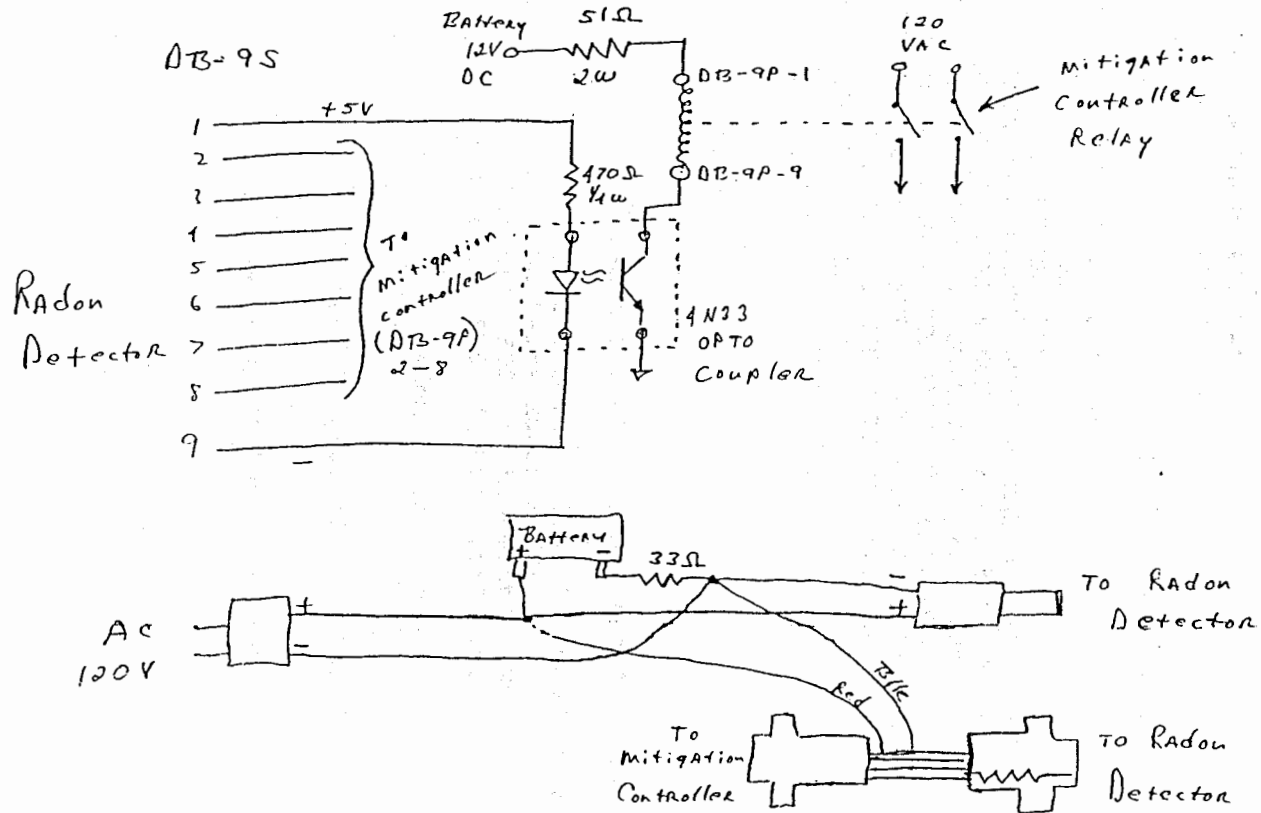 DB-9S
Battery
12V
DC
51Ω
2W
DB-9P-1
DB-9P-9
120
VAC
Mitigation
Controller
Relay
+5V
1
2
3
4
5
6
7
8
9
-
Radon
Detector
To
Mitigation
Controller
(DB-9P)
2-8
470Ω
1/4W
4N33
OPTO
Coupler
Battery
+ -
33Ω
AC
120V
+
-
-
+
To Radon
Detector
Red
Blk
To
Mitigation
Controller
To Radon
Detector